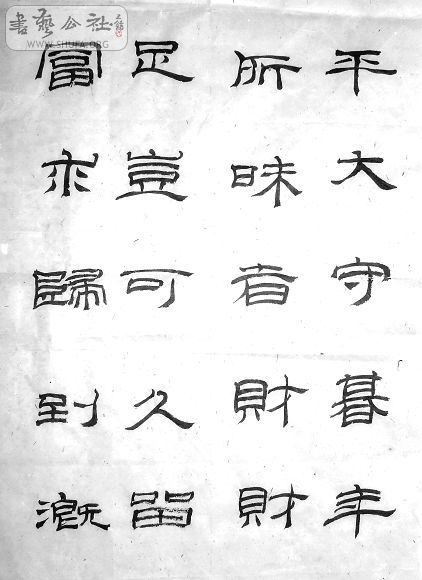 書藝公社
WWW.SHUFA.ORG
平大守暮年
所昧者財財
足豈可久留
富亦歸到溉